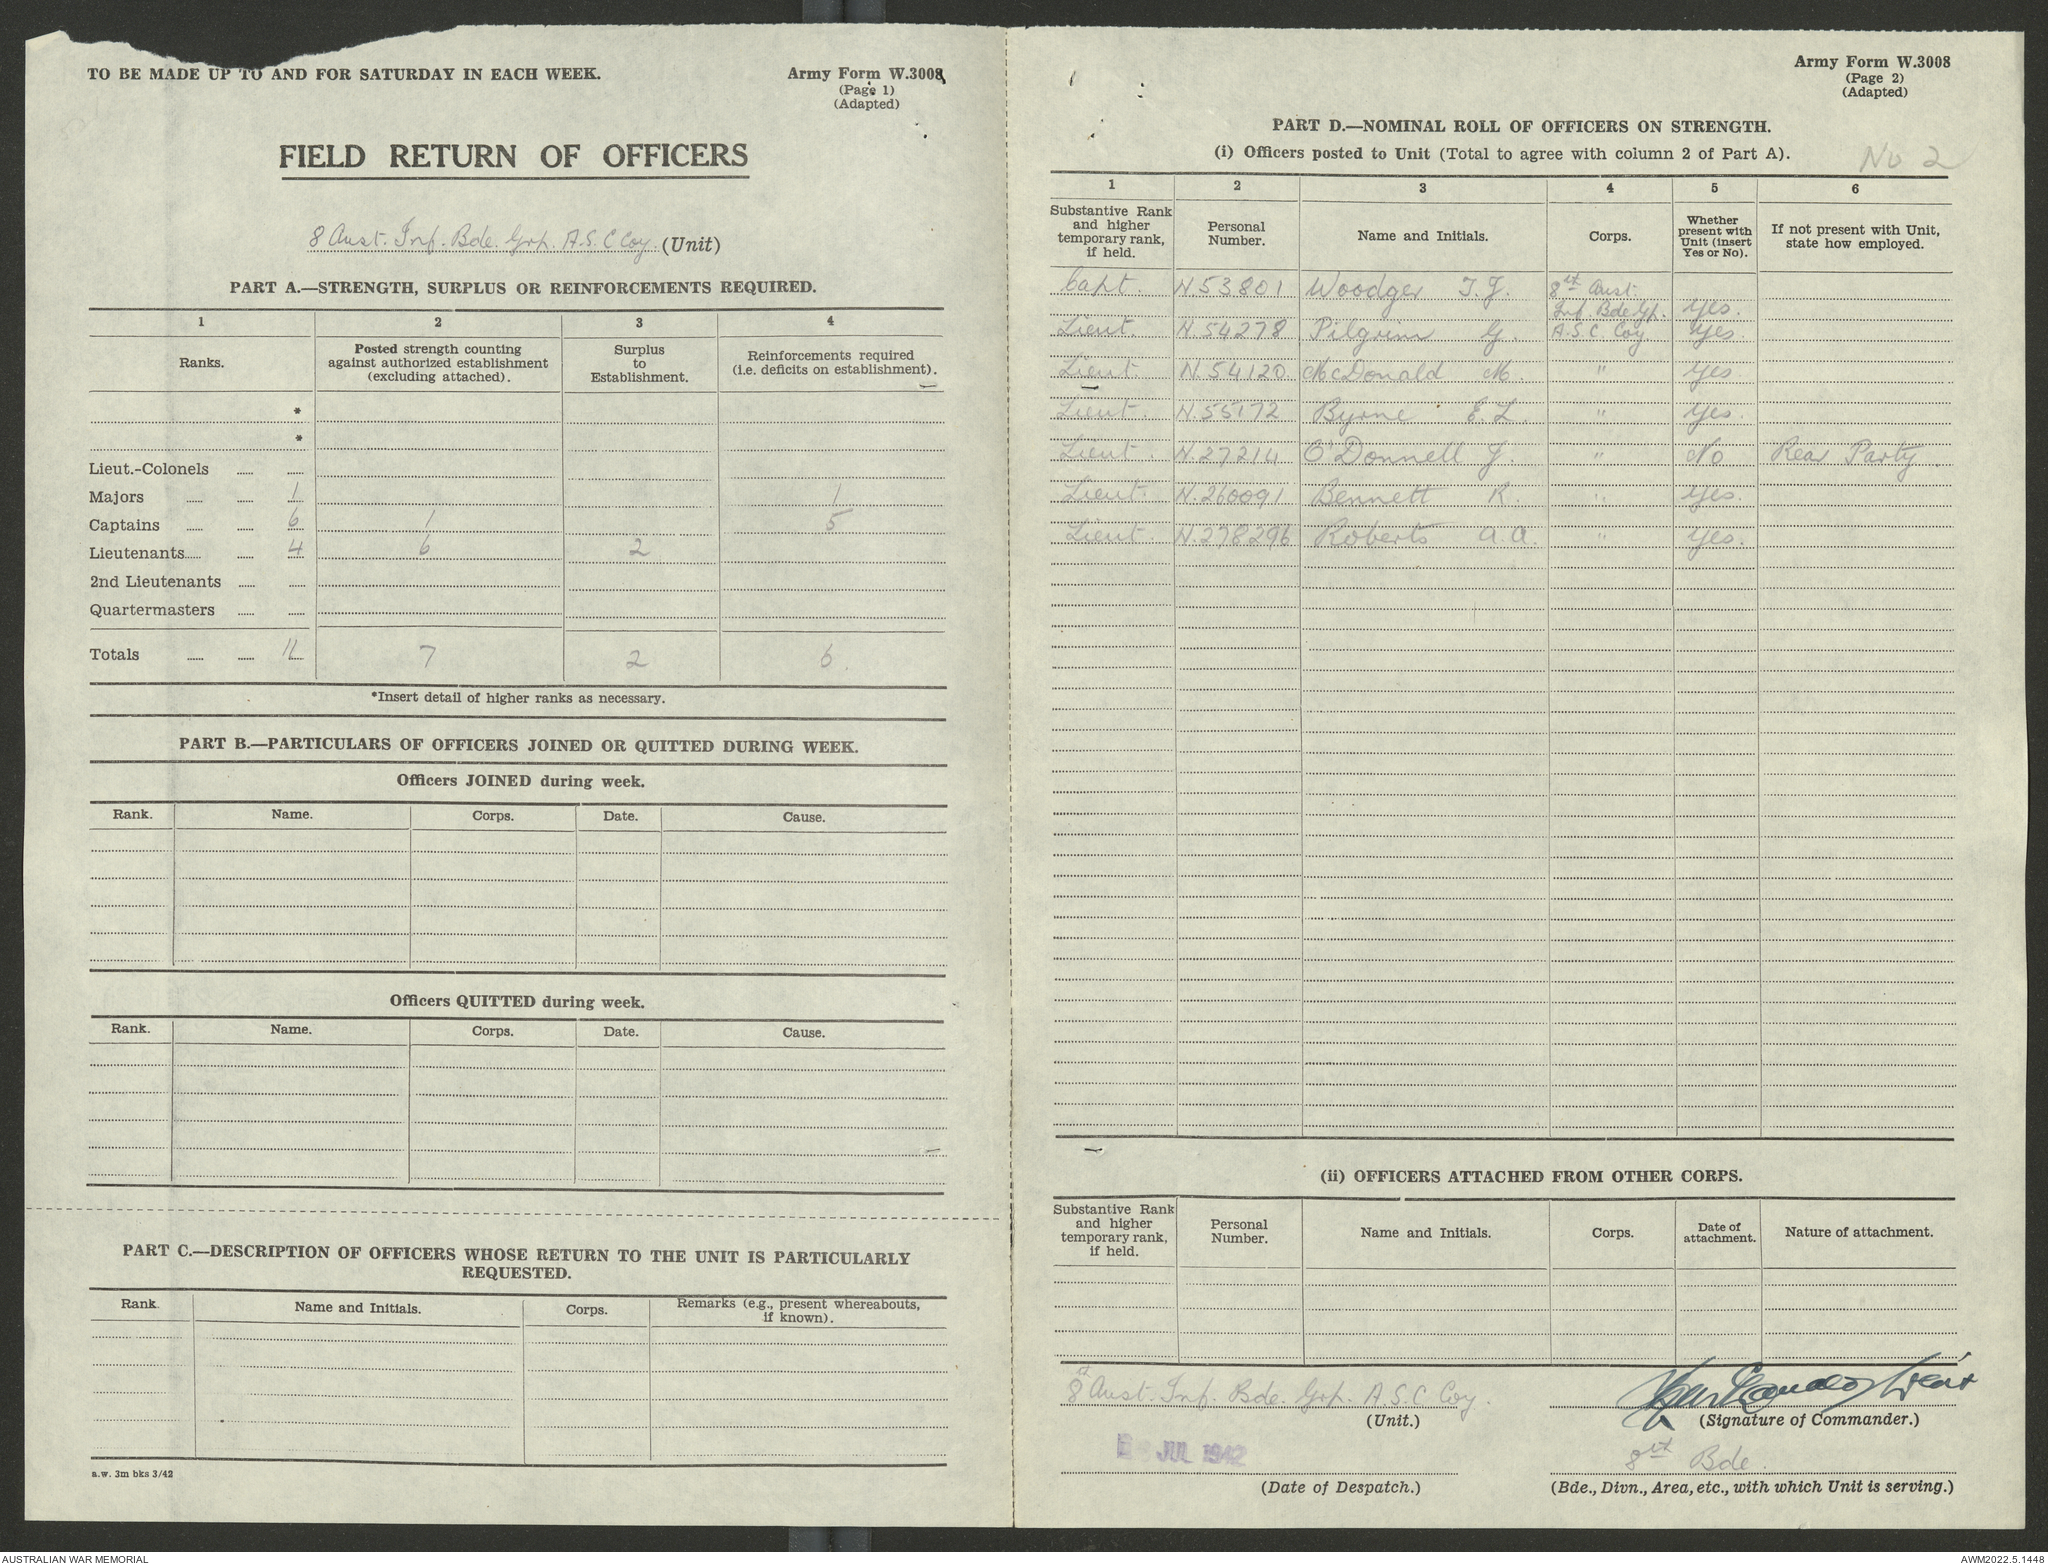 TO BE MADE UP TO AND FOR SATURDAY IN EACH WEEK.
Army Form W.3008
(Page 1)
(Adapted)
FIELD RETURN OF OFFICERS
8 Aust. Inf. Bde. Grp. A.S.C Coy. (Unit)
PART A.—STRENGTH, SURPLUS OR REINFORCEMENTS REQUIRED.
1 2 3 4
Ranks. Posted strength counting against authorized establishment (excluding attached). Surplus to Establishment. Reinforcements required (i.e. deficits on establishment).
*
*
Lieut.-Colonels
Majors 1 1
Captains 6 1 5
Lieutenants 4 6 2
2nd Lieutenants
Quartermasters
Totals 11 7 2 6.
*Insert detail of higher ranks as necessary.
PART B.—PARTICULARS OF OFFICERS JOINED OR QUITTED DURING WEEK.
Officers JOINED during week.
Rank. Name. Corps. Date. Cause.
Officers QUITTED during week.
Rank. Name. Corps. Date. Cause.
PART C.—DESCRIPTION OF OFFICERS WHOSE RETURN TO THE UNIT IS PARTICULARLY
REQUESTED.
Rank. Name and Initials. Corps. Remarks (e.g., present whereabouts, if known).
a.w. 3m bks 3/42
Army Form W.3008
(Page 2)
(Adapted)
PART D.—NOMINAL ROLL OF OFFICERS ON STRENGTH.
(i) Officers posted to Unit (Total to agree with column 2 of Part A).
No 2
1 2 3 4 5 6
Substantive Rank and higher temporary rank, if held. Personal Number. Name and Initials. Corps. Whether present with Unit (insert Yes or No). If not present with Unit, state how employed.
Capt. N.53801 Woodger T.J. 8th Aust. Inf. Bde Gp. Yes.
Lieut. N.54278 Pilgrim G. A.S.C. Coy Yes.
Lieut. N.54120 McDonald M. " Yes.
Lieut. N.55172 Byrne E.L. " Yes.
Lieut. N.27214 O'Donnell J. " No Rear Party.
Lieut. N.260091 Bennett R. " Yes.
Lieut. N.278296 Roberts A.A. " Yes.
(ii) OFFICERS ATTACHED FROM OTHER CORPS.
Substantive Rank and higher temporary rank, if held. Personal Number. Name and Initials. Corps. Date of attachment. Nature of attachment.
8th Aust. Inf. Bde. Grp. A.S.C. Coy.
(Unit.)
(Signature of Commander.)
JUL 1942
(Date of Despatch.)
8th Bde.
(Bde., Divn., Area, etc., with which Unit is serving.)
AUSTRALIAN WAR MEMORIAL
AWM2022.5.1448